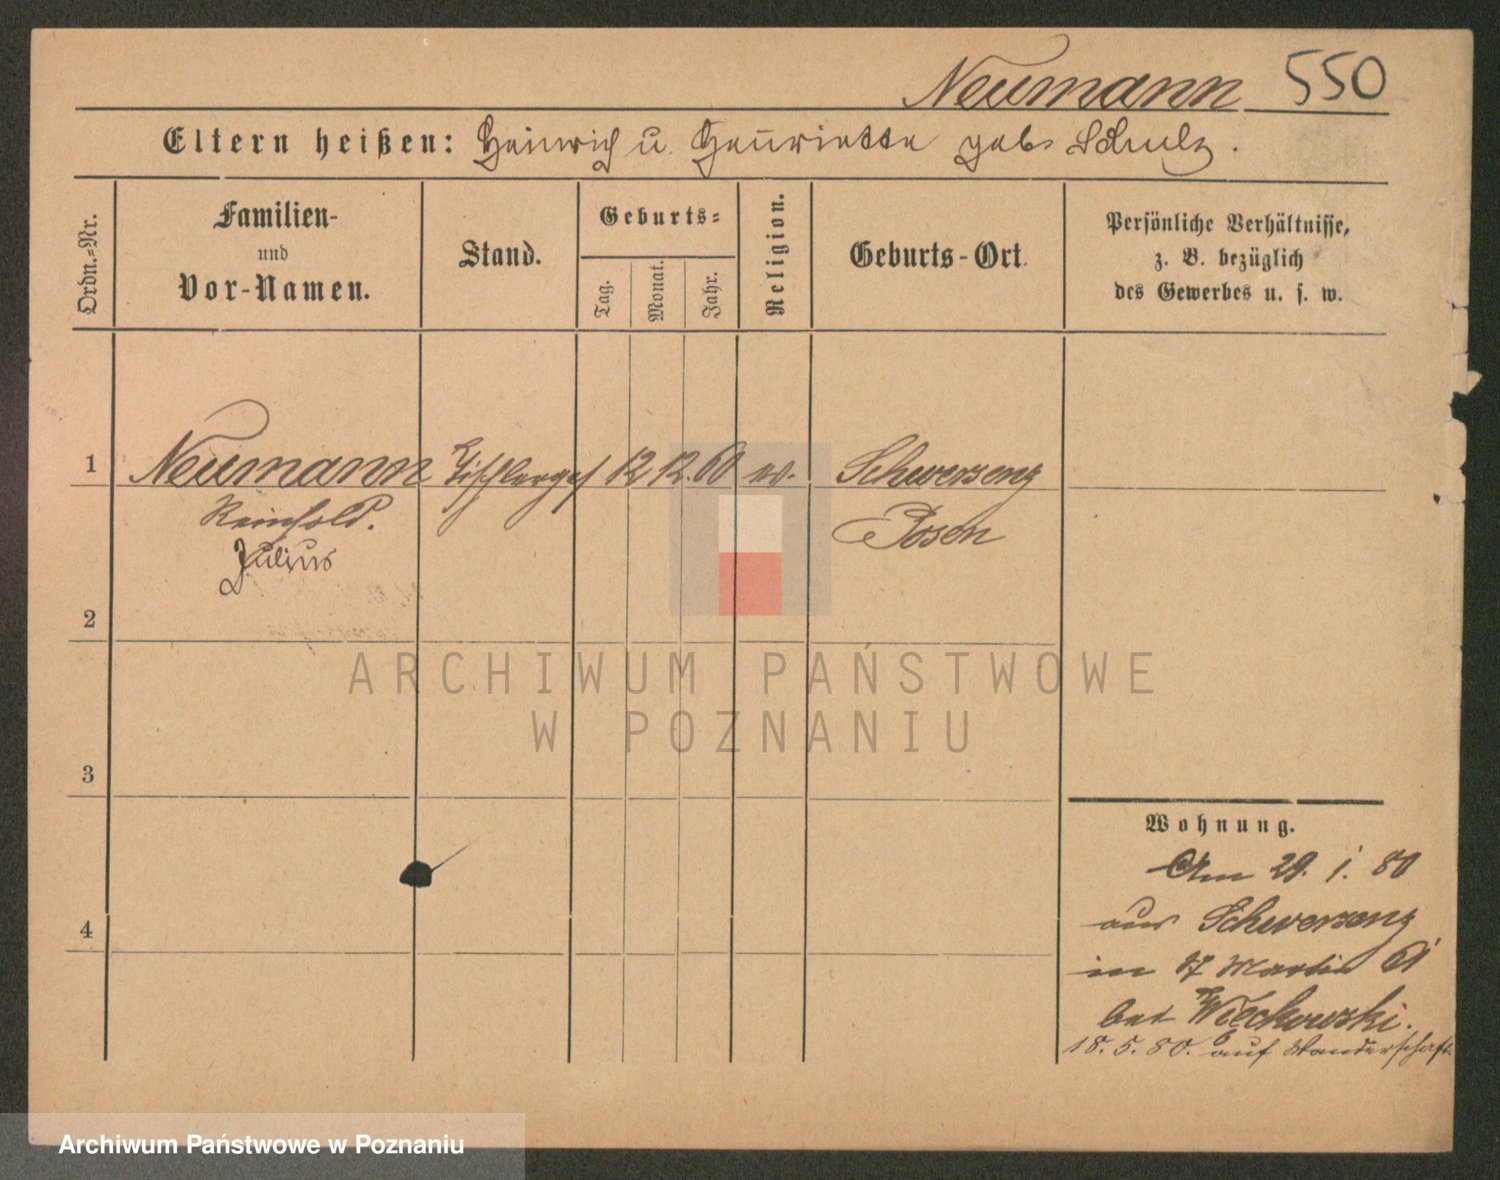 Neumann 550
Eltern heißen: Heinrich u. Henriette geb. Schulz.
Ordn.-Nr.
Familien-
und
Vor-Namen.
Stand.
Geburts-
Tag.
Monat.
Jahr.
Religion.
Geburts-Ort.
Persönliche Verhältnisse,
z. B. bezüglich
des Gewerbes u. s. w.
1 Neumann Tischlerges 12 12. 60 ev. Schwersenz
Reinhold. Posen
Julius
2
ARCHIWUM PAŃSTWOWE
W POZNANIU
3
Wohnung.
Am 29. 1. 80
aus Schwersenz
in St Martin 61
bei Więckowski.
18. 5. 80. auf Wanderschaft.
4
Archiwum Państwowe w Poznaniu